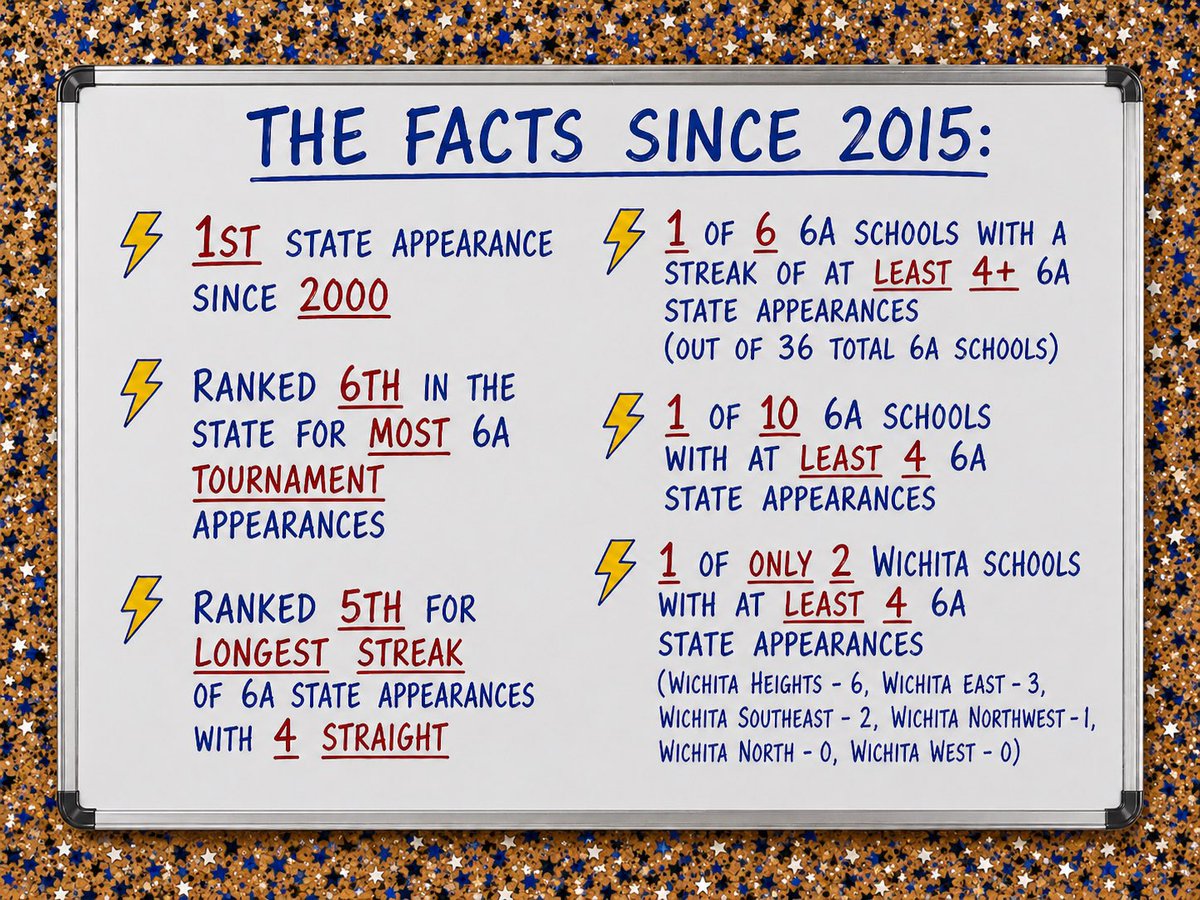 THE FACTS SINCE 2015:
1ST STATE APPEARANCE
SINCE 2000
RANKED 6TH IN THE
STATE FOR MOST 6A
TOURNAMENT
APPEARANCES
RANKED 5TH FOR
LONGEST STREAK
OF 6A STATE APPEARANCES
WITH 4 STRAIGHT
1 OF 6 6A SCHOOLS WITH A
STREAK OF AT LEAST 4+ 6A
STATE APPEARANCES
(OUT OF 36 TOTAL 6A SCHOOLS)
1 OF 10 6A SCHOOLS
WITH AT LEAST 4 6A
STATE APPEARANCES
1 OF ONLY 2 WICHITA SCHOOLS
WITH AT LEAST 4 6A
STATE APPEARANCES
(WICHITA HEIGHTS - 6, WICHITA EAST - 3,
WICHITA SOUTHEAST - 2, WICHITA NORTHWEST - 1,
WICHITA NORTH - 0, WICHITA WEST - 0)